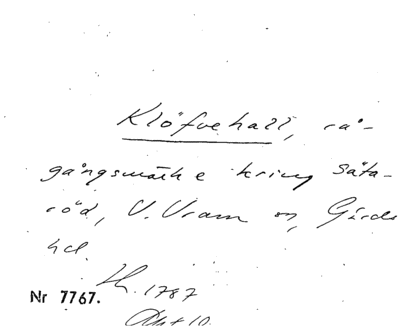 Klöfvehall, rå-
gångsmärke kring Såta-
röd, V. Vram sn, Gärds
hd.
Lh. 1787
Nr 7767.
Akt 10.